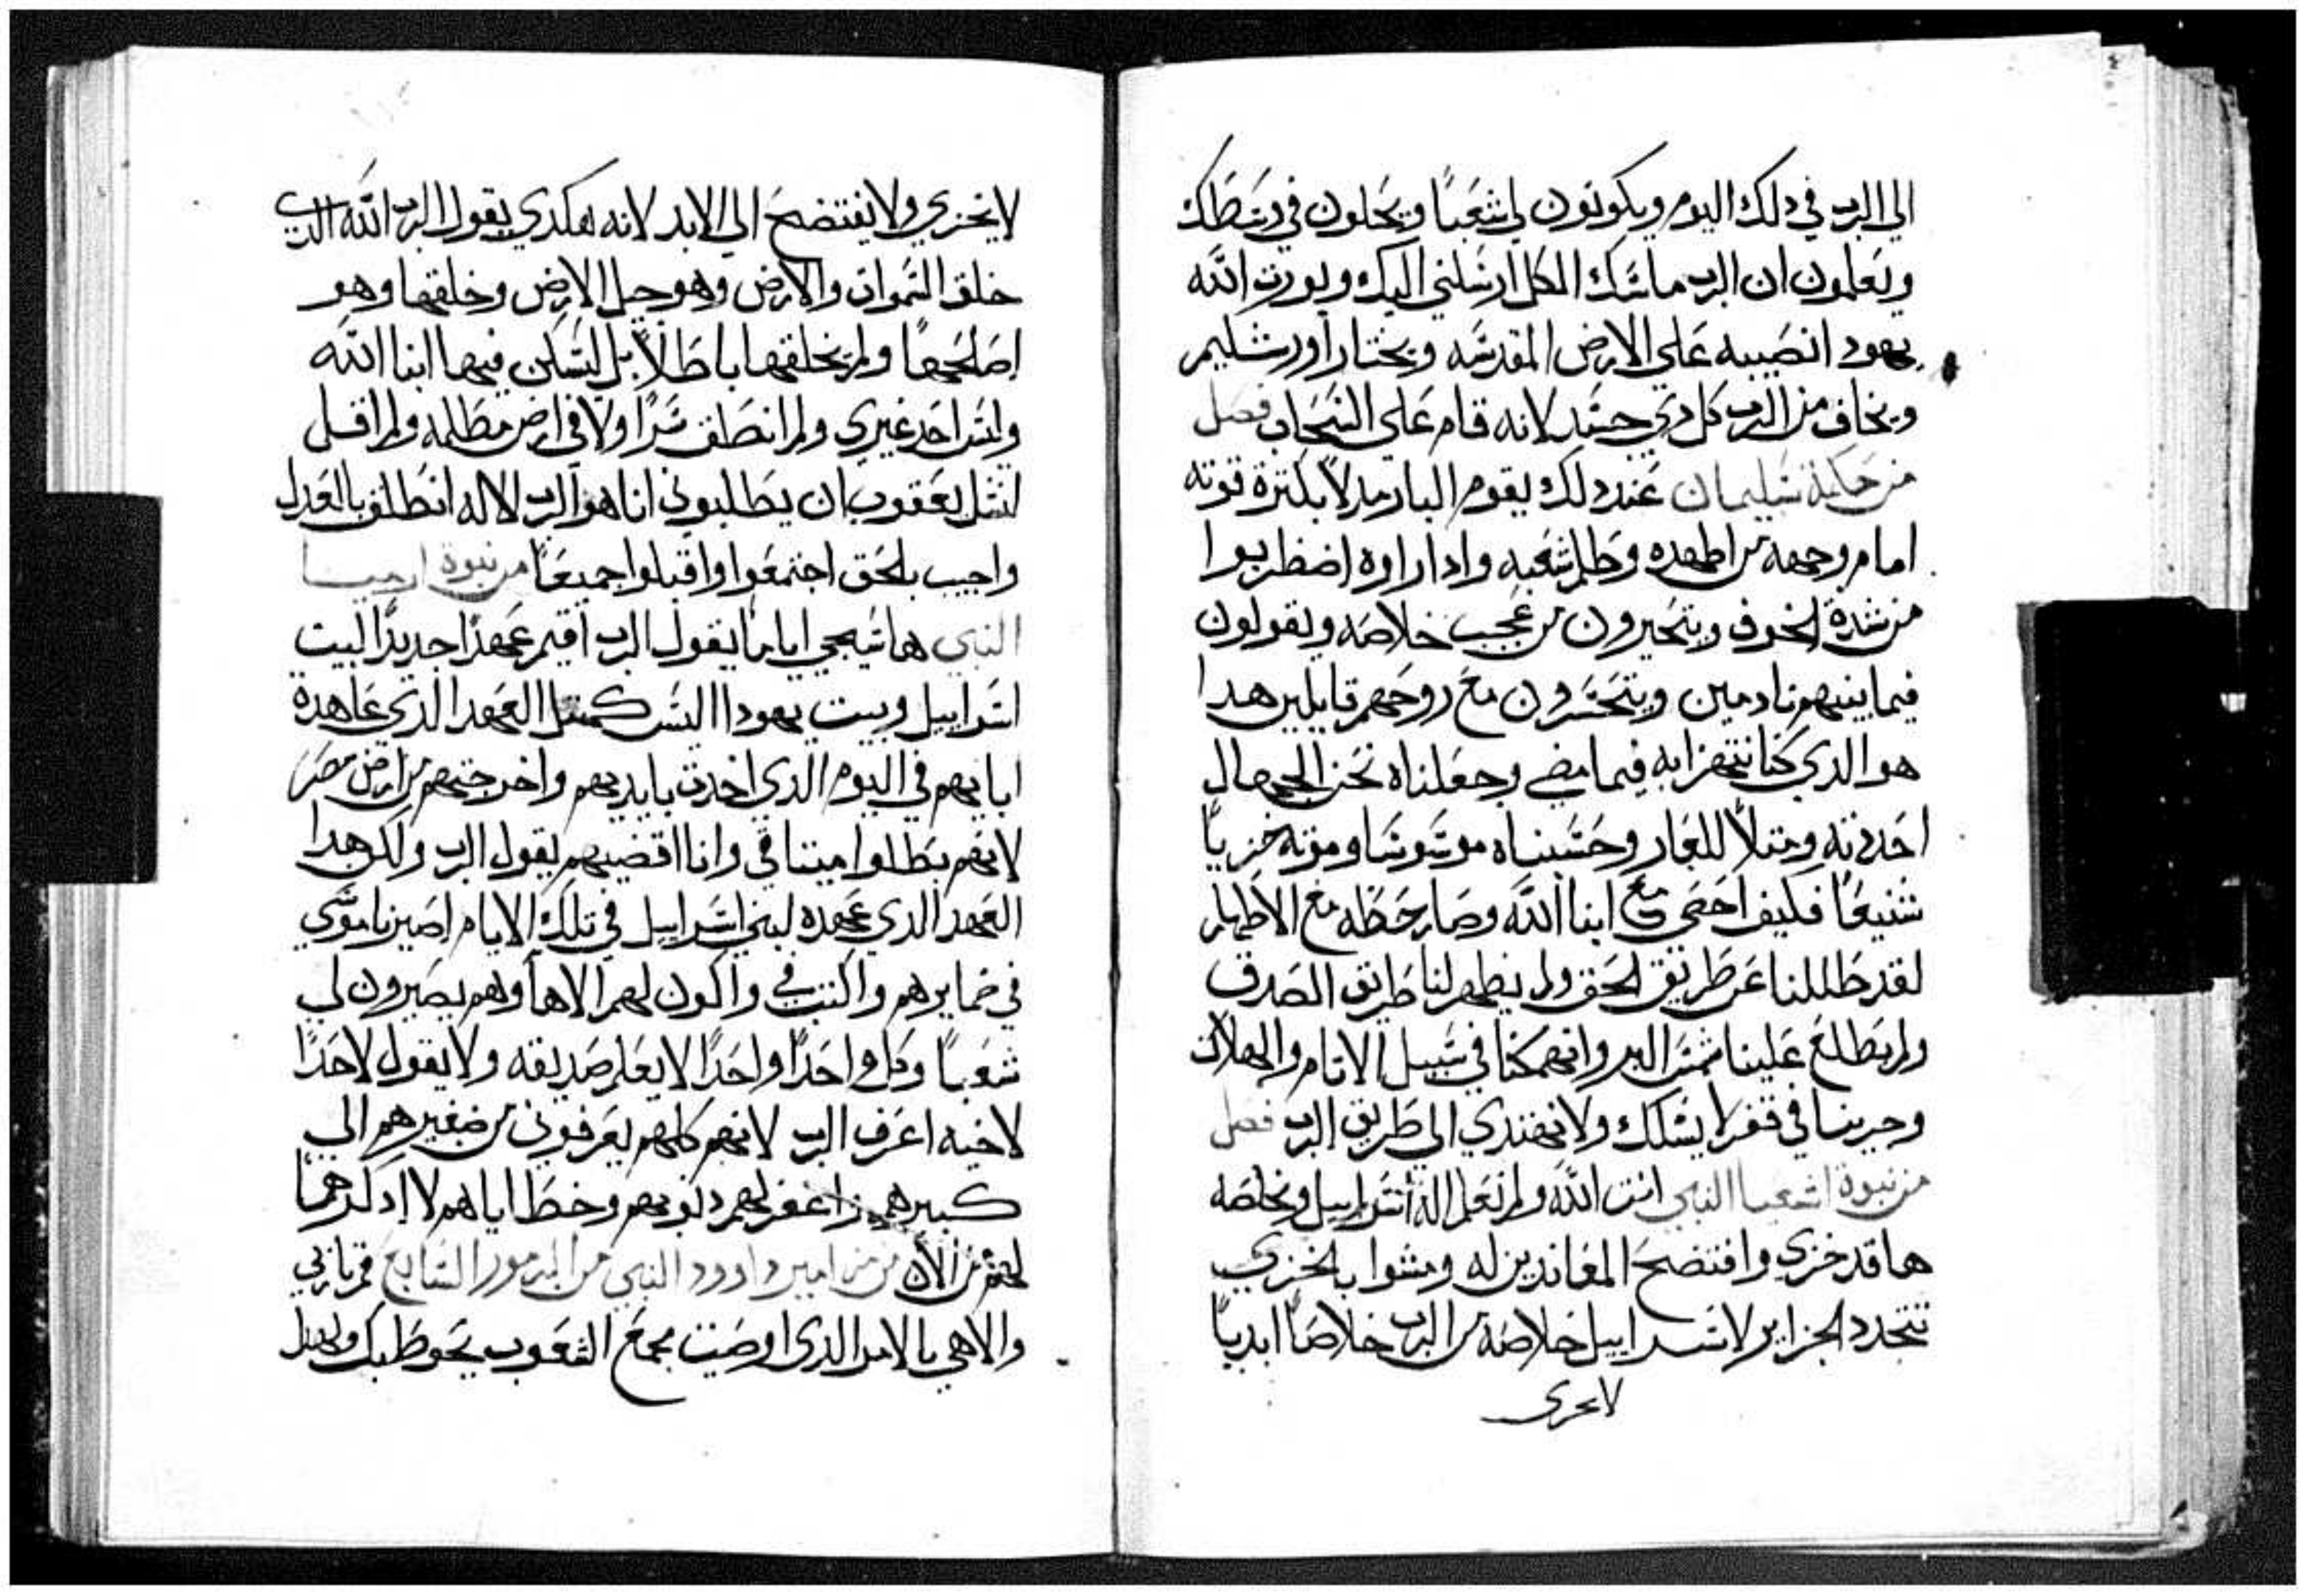 الي الرب في دلك اليوم ويكونون لي شعبًا ويحلون في وسطك
وتعلمون ان الرب ماسك الكل ارسلني اليك ويورث الله
يهود انصيبه علي الارض المقدسه ويختار اورشليم
ويخاف من الرب كل دي جسد لانه قام علي السحاب فصل
من حكمة سليمان عند دلك يقوم البار مدلاً بكترة قوته
امام وجهه من اطهده وظلم شعبه وادا راوه اضطربوا
من شدة الخوف ويتحيرون من عجب خلاصه ويقولون
فيما بينهم نادمين ويتحسرون مع روحهم قايلين هدا
هو الدي كنا نتهزا به فيما مضي وجعلناه نحن الجهال
احدوته ومتلاً للعار وحسبناه موسوسا وموته خزيًا
شنيعًا فكيف احصي مع ابنا الله وصار حظه مع الاطهار
لقد ظللنا عن طريق الحق ولم يظهر لنا طريق الصدق
ولم تطلع علينا شمس البر وانهمكنا في سبيل الاتام والهلاك
وجرينا في قفر لا يسلك ولا نهتدي الى طريق الرب فصل
من نبوة اشعيا النبي انت الله ولم نعلم اله اسراييل ونخلصه
ها قد خزي وافتضح المعاندين له ومشوا بالخزي
تتجدد الجزاير لاسراييل خلاصه من الرب خلاصًا ابديًا
لا يخزى
لا يخزي ولا يفتضح الي الابد لانه هكدي يقول الرب الله الدي
خلق السموات والارض وهو جبل الارض وخلقها وهو
اصلحها ولم يخلقها باطلاً بل ليسكن فيها ابنا الله
وليس احد غيري ولم انطق سرًا ولا في ارض مظلمه ولم اقل
لنسل يعقوب ان يطلبوني انا هو الرب الاله انطلق بالعدل
واجيب بالحق اجتمعوا واقبلوا جميعًا من نبوة ارميا
النبي ها سيجي اياما يقول الرب اقيم عهدًا جديدًا لبيت
اسراييل وبيت يهودا اليس كمتل العهد الدي عاهدة
ابايهم في اليوم الدي اخدت بايديهم واخرجتهم من ارض مصر
لانهم بطلوا ميتاقي وانا اقضيهم يقول الرب ولكن هدا
العهد الدي عهده لبني اسراييل في تلك الايام اصير ناموسي
في ضمايرهم واكتب في واكون لهم الاهاً وهم يصيرون لي
شعبًا وكل واحدًا واحدًا لا يعلم صديقه ولا يقول لاحدًا
لاخيه اعرف الرب لانهم كلهم يعرفوني من صغيرهم الي
كبيرهم اغفر لهم دنوبهم وخطاياهم لا ادكرهما
من الان من مزامير داوود النبي من المزمور السابع قم ياربي
والاهي بالامر الدى اوصيت مجمع الشعوب تحوط بك